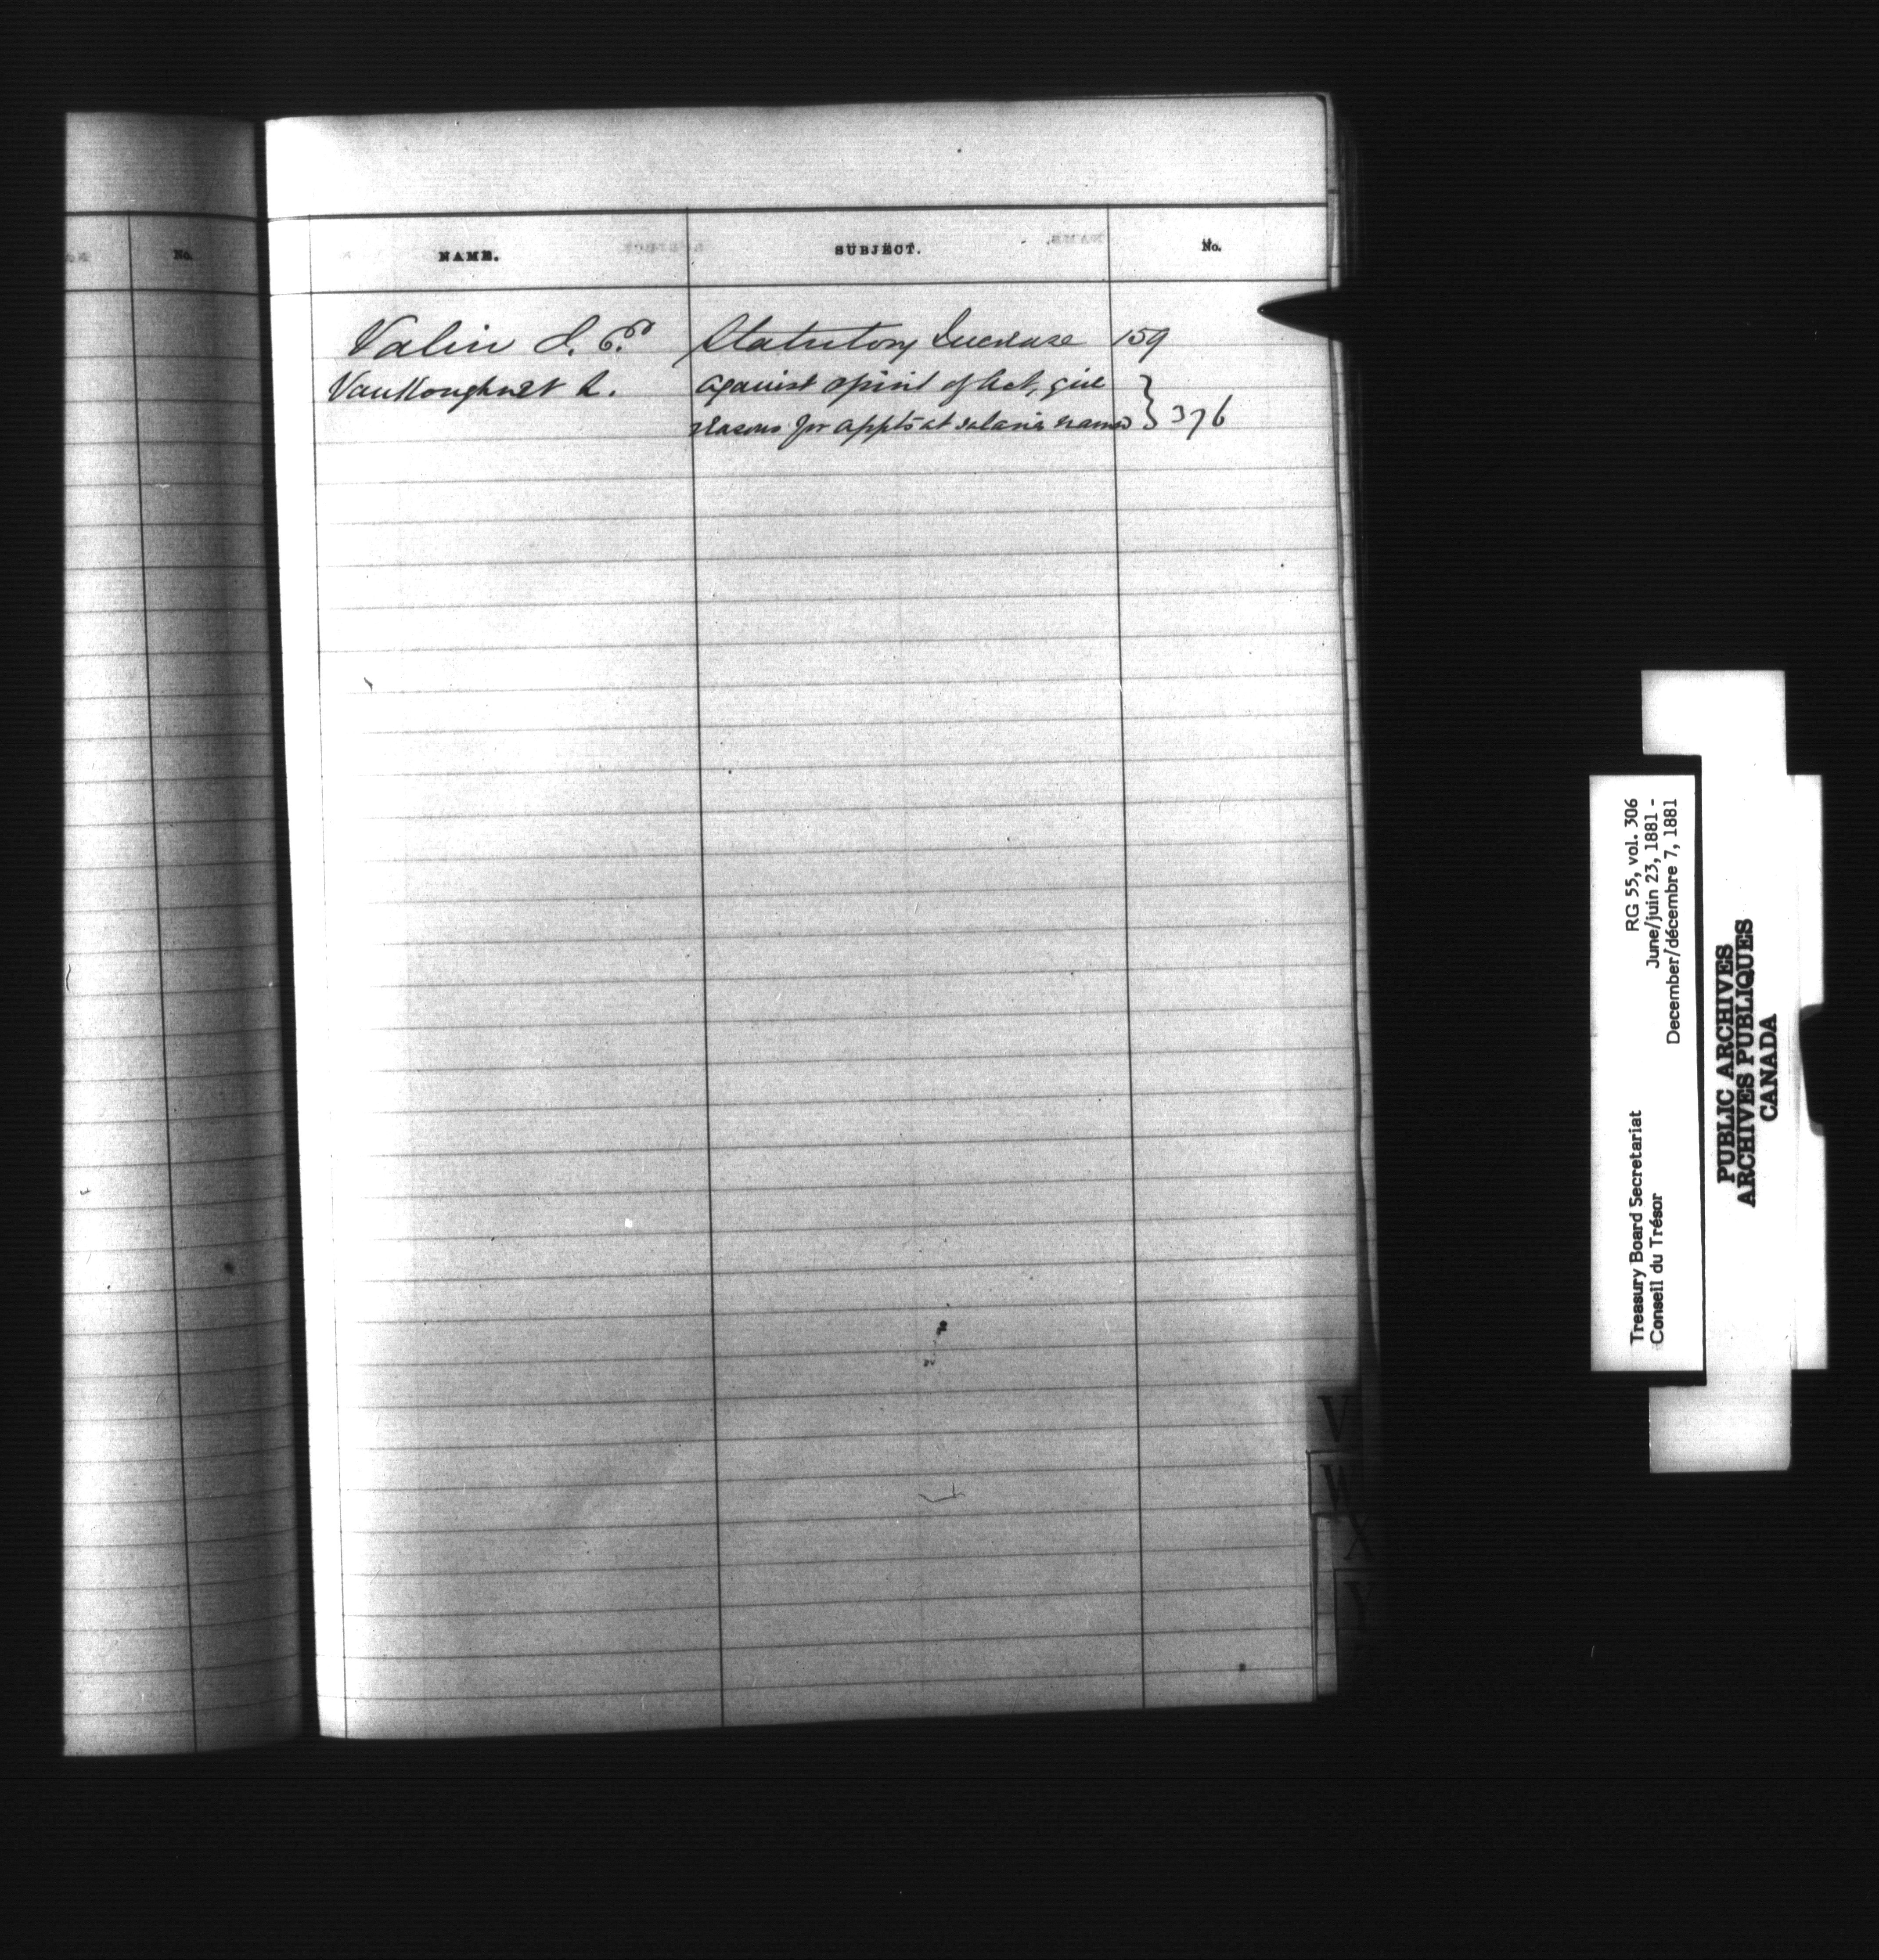 No.
NAME. SUBJECT. No.
Valin Statutory Increase 159
VanKoughnet L. against spirit of Act, give
reasons for appts at salaries named } 376
V
W
X
Y
Treasury Board Secretariat RG 55, vol. 306
Conseil du Trésor June/juin 23, 1881 -
December/décembre 7, 1881
PUBLIC ARCHIVES
ARCHIVES PUBLIQUES
CANADA